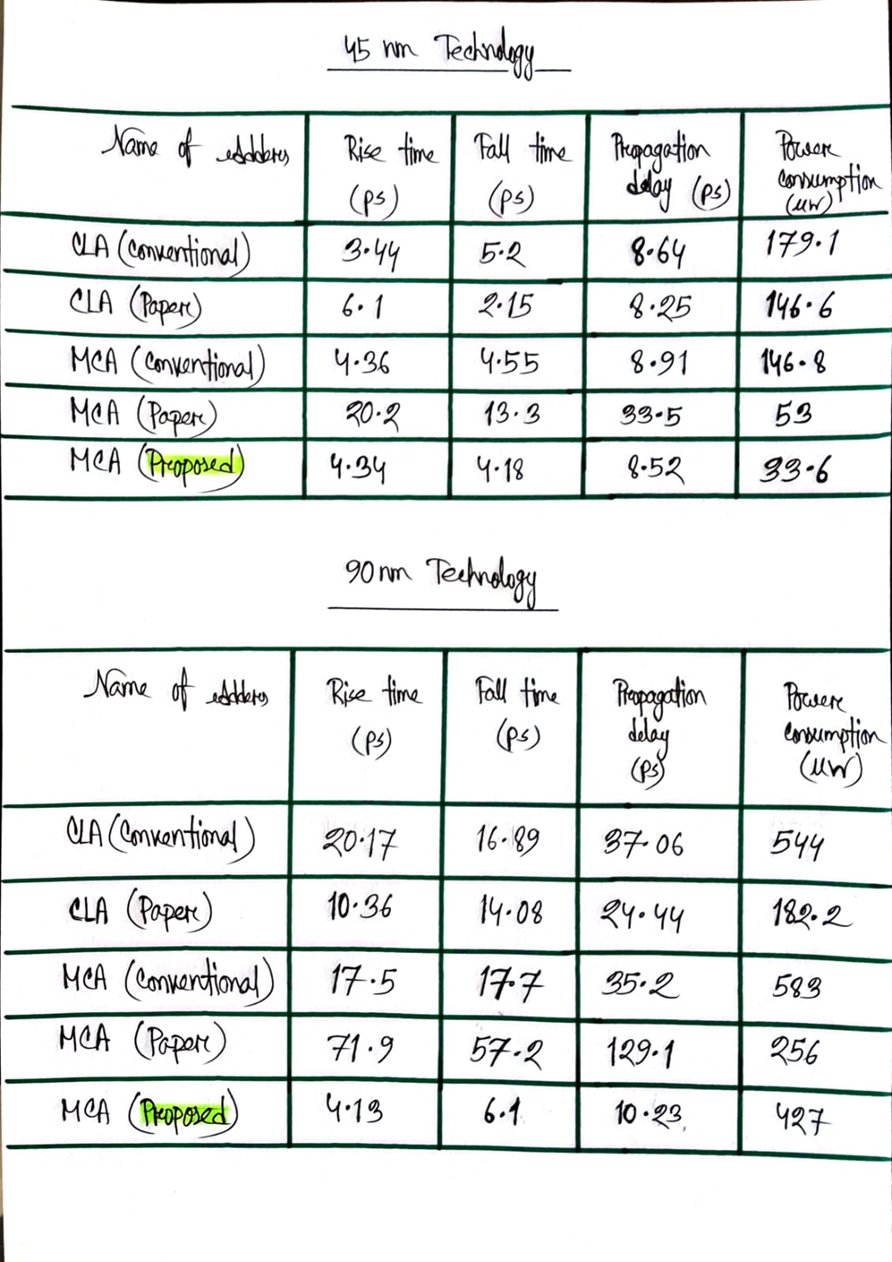 45 nm Technology
Name of Adders Rise time (ps) Fall time (ps) Propagation delay (ps) Power consumption (uw)
CLA (Conventional) 3.44 5.2 8.64 179.1
CLA (Paper) 6.1 2.15 8.25 146.6
MCA (Conventional) 4.36 4.55 8.91 146.8
MCA (Paper) 20.2 13.3 33.5 53
MCA (Proposed) 4.34 4.18 8.52 33.6
90 nm Technology
Name of Adders Rise time (ps) Fall time (ps) Propagation delay (ps) Power consumption (uw)
CLA (Conventional) 20.17 16.89 37.06 544
CLA (Paper) 10.36 14.08 24.44 182.2
MCA (Conventional) 17.5 17.7 35.2 583
MCA (Paper) 71.9 57.2 129.1 256
MCA (Proposed) 4.13 6.1 10.23 427